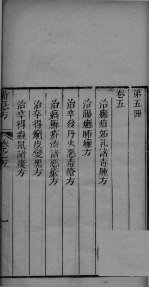 第五冊
卷五
治癰疽妒乳諸毒腫方
治腸癰肺癰方
治卒發丹火惡毒瘡方
治瘑癬疥漆諸惡瘡方
治卒得癩皮變黑方
治卒得蟲鼠諸瘻方